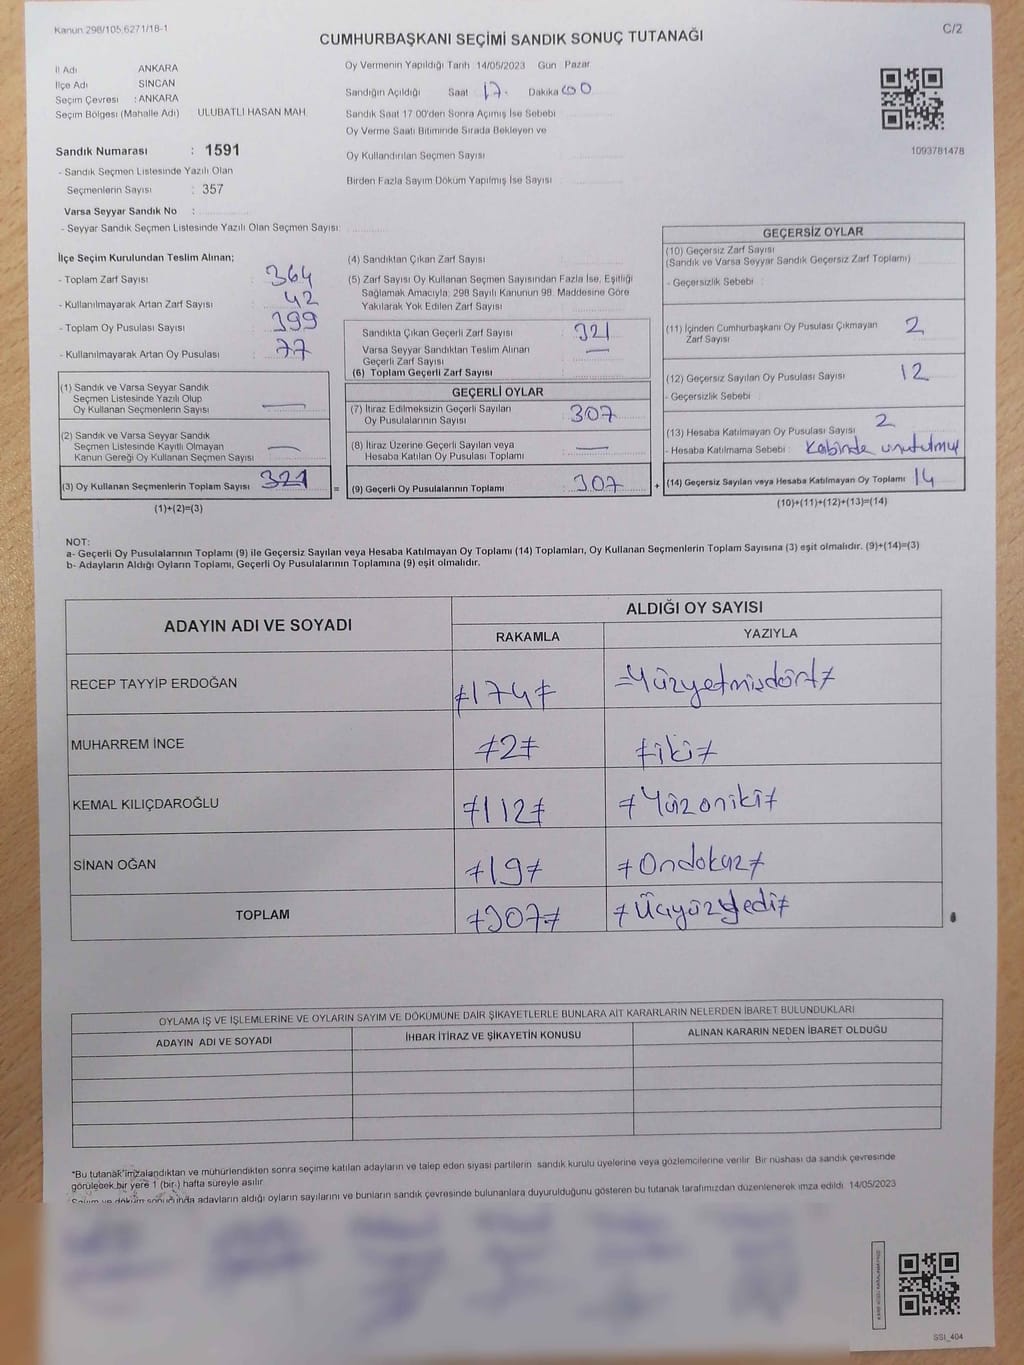 Kanun 298/105,6271/18-1
C/2
CUMHURBAŞKANI SEÇİMİ SANDIK SONUÇ TUTANAĞI
İl Adı ANKARA
İlçe Adı SİNCAN
Seçim Çevresi : ANKARA
Seçim Bölgesi (Mahalle Adı) ULUBATLI HASAN MAH.
Sandık Numarası : 1591
- Sandık Seçmen Listesinde Yazılı Olan
Seçmenlerin Sayısı : 357
Varsa Seyyar Sandık No :
- Seyyar Sandık Seçmen Listesinde Yazılı Olan Seçmen Sayısı:
Oy Vermenin Yapıldığı Tarih 14/05/2023 Gün Pazar
Sandığın Açıldığı Saat 17. Dakika 00
Sandık Saat 17 00'den Sonra Açımış İse Sebebi
Oy Verme Saati Bitiminde Sırada Bekleyen ve
Oy Kullandırılan Seçmen Sayısı
Birden Fazla Sayım Döküm Yapılmış İse Sayısı
1093781478
İlçe Seçim Kurulundan Teslim Alınan;
- Toplam Zarf Sayısı 364
- Kullanılmayarak Artan Zarf Sayısı 42
- Toplam Oy Pusulası Sayısı 399
- Kullanılmayarak Artan Oy Pusulası 77
(1) Sandık ve Varsa Seyyar Sandık
Seçmen Listesinde Yazılı Olup
Oy Kullanan Seçmenlerin Sayısı —
(2) Sandık ve Varsa Seyyar Sandık
Seçmen Listesinde Kayıtlı Olmayan
Kanun Gereği Oy Kullanan Seçmen Sayısı —
(3) Oy Kullanan Seçmenlerin Toplam Sayısı 321
(1)+(2)=(3)
(4) Sandıktan Çıkan Zarf Sayısı
(5) Zarf Sayısı Oy Kullanan Seçmen Sayısından Fazla İse, Eşitliği
Sağlamak Amacıyla; 298 Sayılı Kanunun 98. Maddesine Göre
Yakılarak Yok Edilen Zarf Sayısı
Sandıkta Çıkan Geçerli Zarf Sayısı 321
Varsa Seyyar Sandıktan Teslim Alınan
Geçerli Zarf Sayısı —
(6) Toplam Geçerli Zarf Sayısı
GEÇERLİ OYLAR
(7) İtiraz Edilmeksizin Geçerli Sayılan
Oy Pusulalarının Sayısı 307
(8) İtiraz Üzerine Geçerli Sayılan veya
Hesaba Katılan Oy Pusulası Toplamı —
=
(9) Geçerli Oy Pusulalarının Toplamı 307
+
GEÇERSİZ OYLAR
(10) Geçersiz Zarf Sayısı
(Sandık ve Varsa Seyyar Sandık Geçersiz Zarf Toplamı)
- Geçersizlik Sebebi
(11) İçinden Cumhurbaşkanı Oy Pusulası Çıkmayan
Zarf Sayısı 2
(12) Geçersiz Sayılan Oy Pusulası Sayısı 12
- Geçersizlik Sebebi
(13) Hesaba Katılmayan Oy Pusulası Sayısı 2
- Hesaba Katılmama Sebebi : Kabinde unutulmuş
(14) Geçersiz Sayılan veya Hesaba Katılmayan Oy Toplamı 14
(10)+(11)+(12)+(13)=(14)
NOT:
a- Geçerli Oy Pusulalarının Toplamı (9) ile Geçersiz Sayılan veya Hesaba Katılmayan Oy Toplamı (14) Toplamları, Oy Kullanan Seçmenlerin Toplam Sayısına (3) eşit olmalıdır. (9)+(14)=(3)
b- Adayların Aldığı Oyların Toplamı, Geçerli Oy Pusulalarının Toplamına (9) eşit olmalıdır.
ADAYIN ADI VE SOYADI
ALDIĞI OY SAYISI
RAKAMLA YAZIYLA
RECEP TAYYİP ERDOĞAN ≠174≠ =Yüzyetmişdört≠
MUHARREM İNCE ≠2≠ ≠iki≠
KEMAL KILIÇDAROĞLU ≠112≠ ≠Yüzoniki≠
SİNAN OĞAN ≠19≠ ≠Ondokuz≠
TOPLAM ≠307≠ ≠Üçyüzyedi≠
OYLAMA İŞ VE İŞLEMLERİNE VE OYLARIN SAYIM VE DÖKÜMÜNE DAİR ŞİKAYETLERLE BUNLARA AİT KARARLARIN NELERDEN İBARET BULUNDUKLARI
ADAYIN ADI VE SOYADI İHBAR İTİRAZ VE ŞİKAYETİN KONUSU ALINAN KARARIN NEDEN İBARET OLDUĞU
*Bu tutanak imzalandıktan ve mühürlendikten sonra seçime katılan adayların ve talep eden siyasi partilerin sandık kurulu üyelerine veya gözlemcilerine verilir. Bir nüshası da sandık çevresinde
görülecek bir yere 1 (bir) hafta süreyle asılır.
Sayım ve döküm sonuçunda adayların aldığı oyların sayılarını ve bunların sandık çevresinde bulunanlara duyurulduğunu gösteren bu tutanak tarafımızdan düzenlenerek imza edildi. 14/05/2023
SSI_404